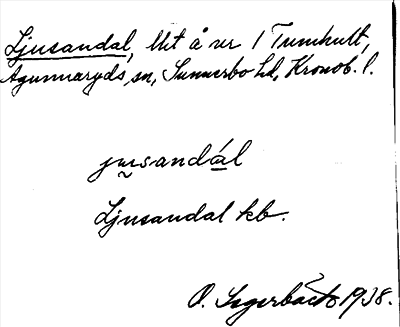 Ljusandal, litet å ur i Tunnhult,
Agunnaryds sn, Sunnerbo hd, Kronob. l.
jusandál
Ljusandal kb.
O. Sagerbäck 1938.